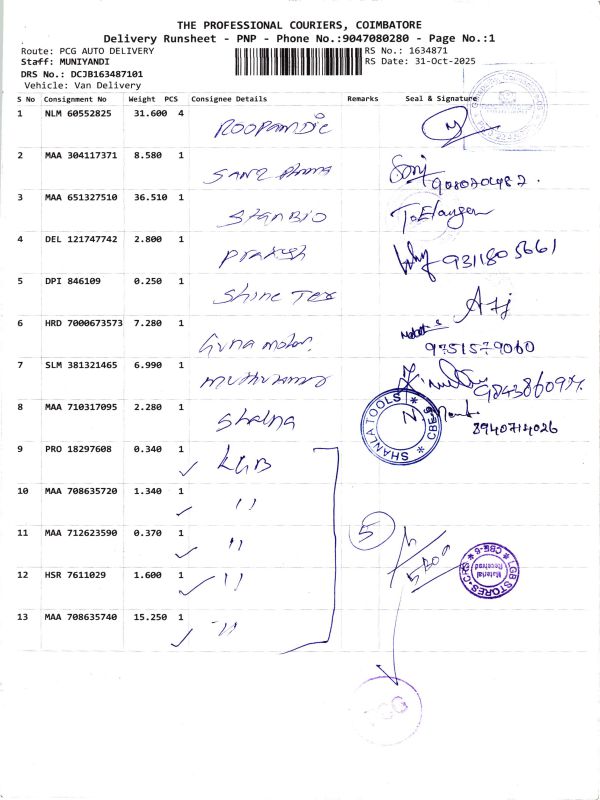 THE PROFESSIONAL COURIERS, COIMBATORE
Delivery Runsheet - PNP - Phone No.:9047080280 - Page No.:1
Route: PCG AUTO DELIVERY RS No.: 1634871
Staff: MUNIYANDI RS Date: 31-Oct-2025
DRS No.: DCJB163487101
Vehicle: Van Delivery
S No Consignment No Weight PCS Consignee Details Remarks Seal & Signature
1 NLM 60552825 31.600 4
2 MAA 304117371 8.580 1
3 MAA 651327510 36.510 1 Stanbio
4 DEL 121747742 2.800 1 Prakash 9311805661
5 DPI 846109 0.250 1 Shine Tex
6 HRD 7000673573 7.280 1 Guna motor. 9751579060
7 SLM 381321465 6.990 1
8 MAA 710317095 2.280 1 8940714026
SHANLATOOLS * CBE-6 *
9 PRO 18297608 0.340 1 LGB
10 MAA 708635720 1.340 1 "
11 MAA 712623590 0.370 1 "
5
12 HSR 7611029 1.600 1 "
LGB STORES-CBS * CBE-6 *
Material
Received
13 MAA 708635740 15.250 1 "